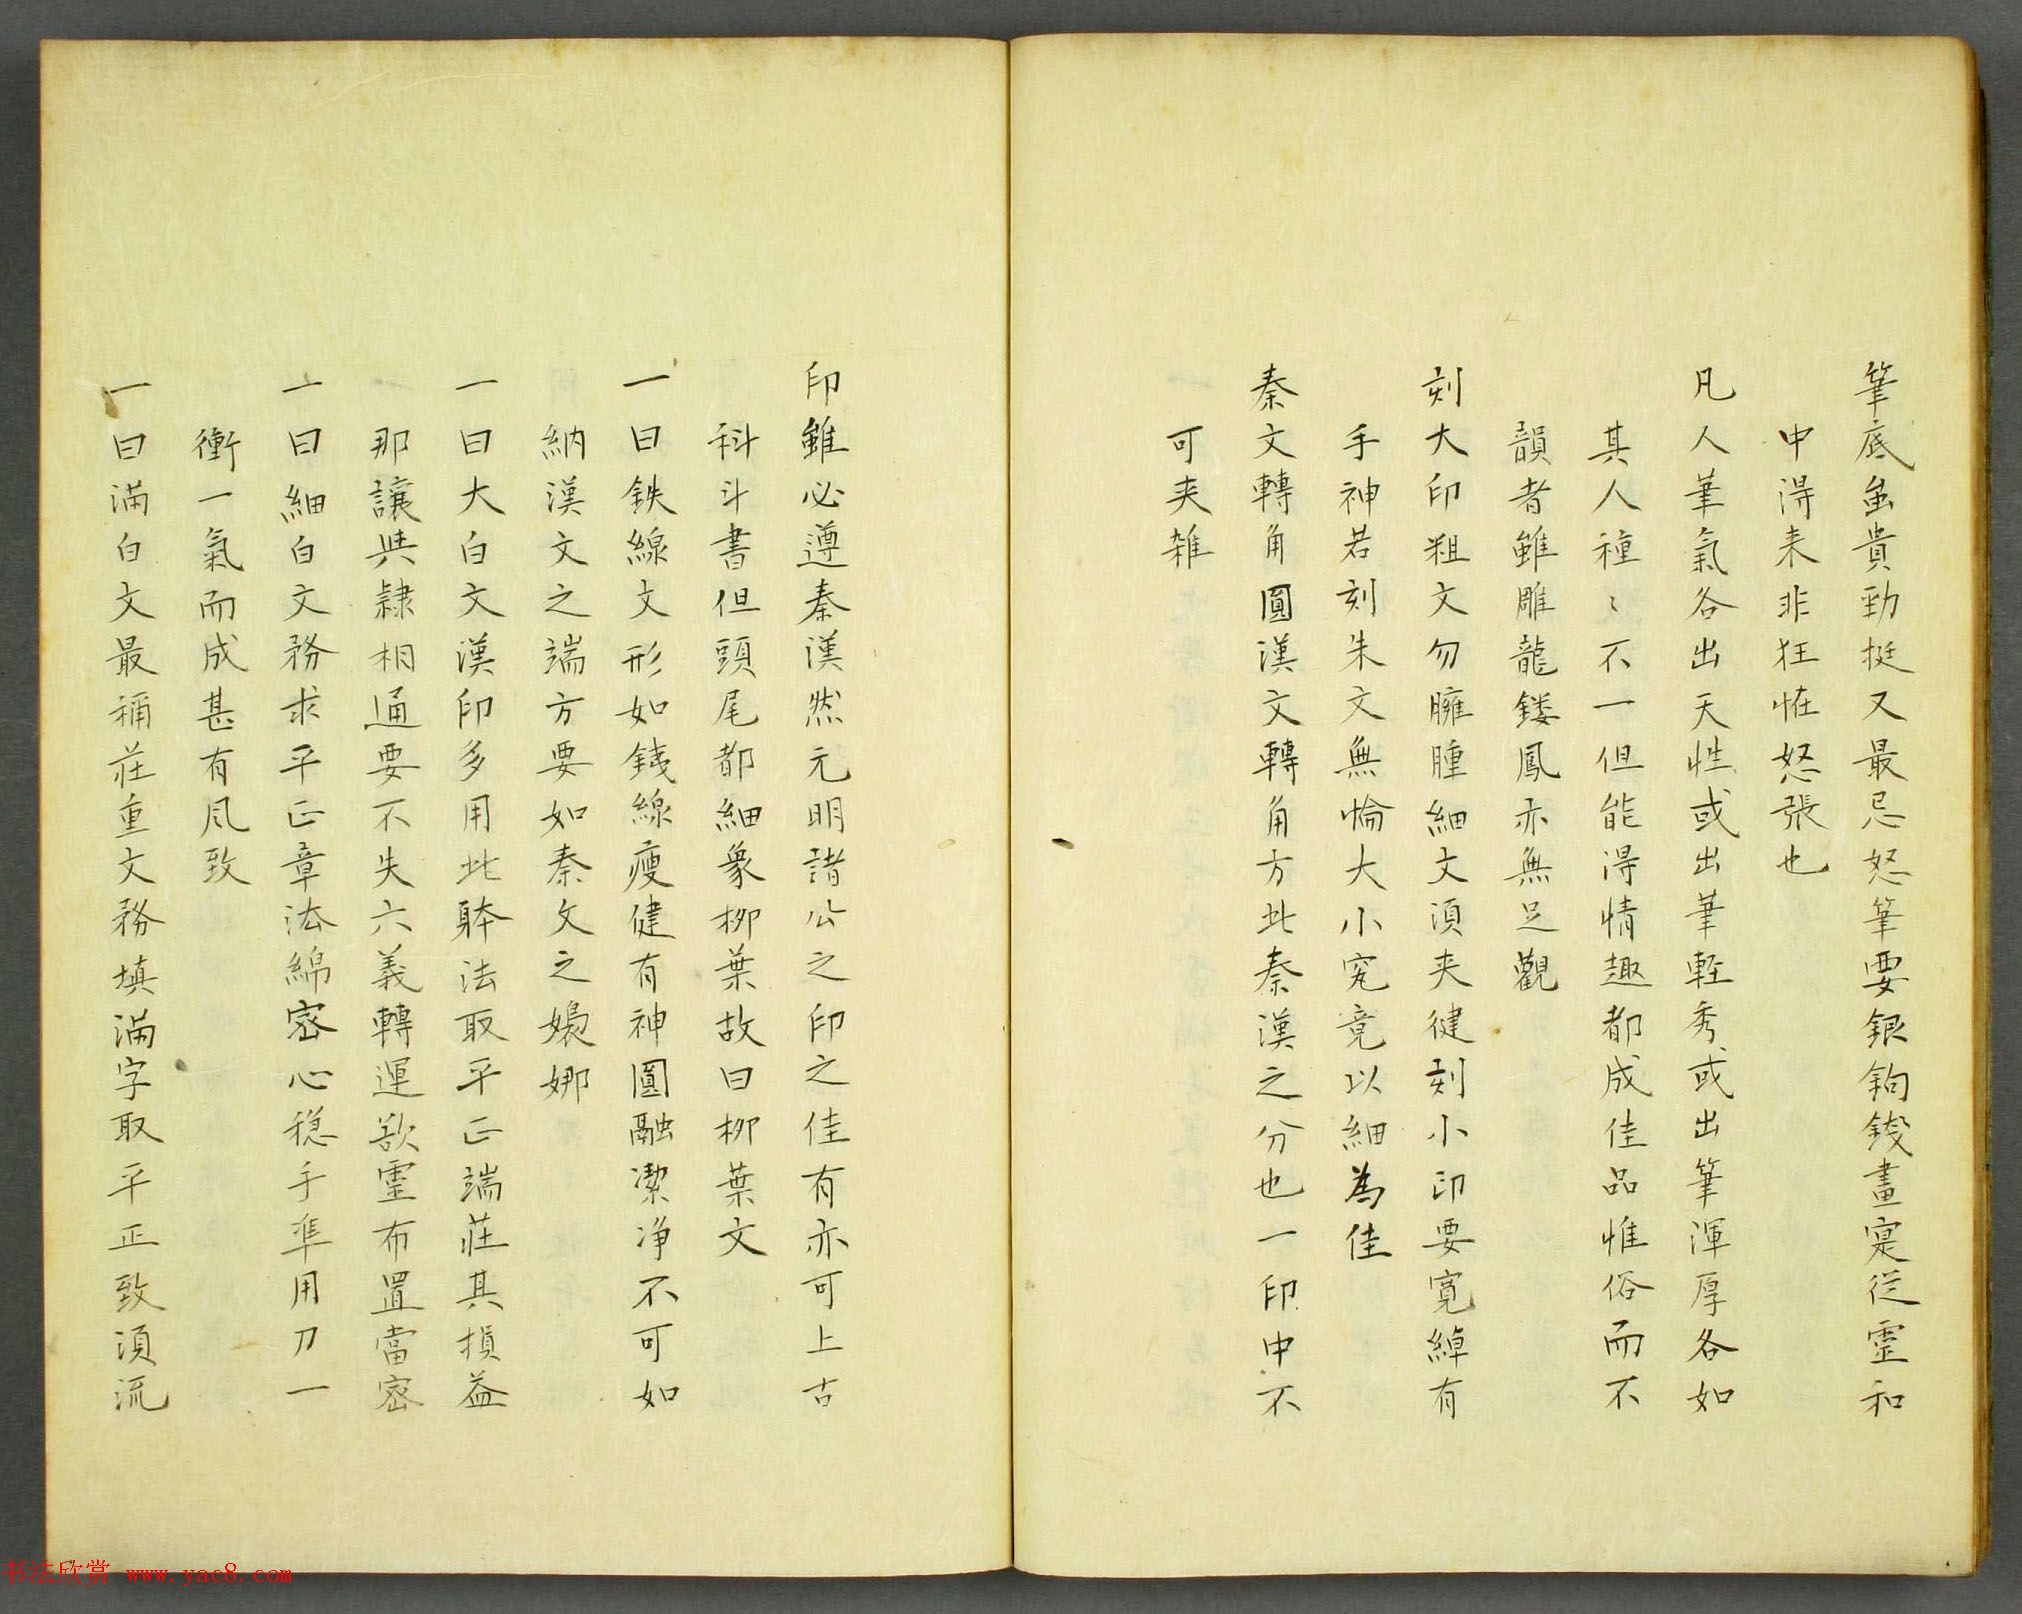 筆底虽貴勁挺又最忌怒筆要銀鉤鐵畫寔從靈和
中淂来非狂恠怒張也
凡人筆氣各出天性或出筆輕秀或出筆渾厚各如
其人種〻不一但能淂情趣都成佳品惟俗而不
韻者雖雕龍鏤鳳亦無足觀
刻大印粗文勿臃腫細文須夾健刻小印要寛綽有
手神若刻朱文無惀大小究竟以細為佳
秦文轉角圓漢文轉角方此秦漢之分也一印中不
可夹雑
印雖必遵秦漢然元明諸公之印之佳有亦可上古
科斗書但頭尾都細象柳葉故曰柳葉文
一曰鉄線文形如銕線瘦健有神圓融潔净不可如
納漢文之端方要如秦文之嬝娜
一曰大白文漢印多用此躰法取平正端莊其損益
那讓與隷相通要不失六義轉運欲靈布置當密
一曰細白文務求平正章法綿密心穏手準用刀一
衝一氣而成甚有风致
一曰滿白文最稱莊重文務填滿字取平正致須流
书法欣赏 www.yac8.com